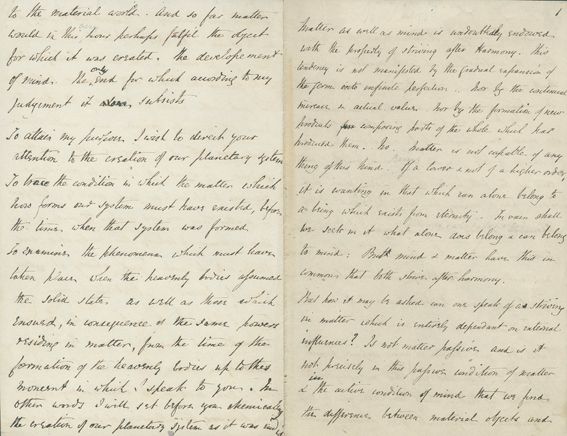 to the material world. And so far matter
would in this hour perhaps fulfil the object
for which it was created. The developement
of mind. The only end for which according to my
judgement it subsists
To attain my purpose I wish to direct your
attention to the creation of our planetary system
To trace the condition in which the matter which
now forms our system must have existed, before
the time, when that system was formed.
To examine the phenomena which must have
taken place when the heavenly bodies assumed
the solid state. as well as those which
ensued, in consequence of the same powers
residing in matter, from the time of the
formation of the heavenly bodies up to this
moment in which I speak to you. In
other words I will set before you chemically
the creation of our planetary system as it was and is
1
Matter as well as mind is undoubtedly endowed
with the property of striving after Harmony. This
tendency is not manifested by the gradual expansion of
the germ into infinite perfection. Nor by the continual
increase in actual value. Nor by the formation of new
products composing parts of the whole which has
produced them. No. Matter is not capable of any
thing of this kind. If a lower & not of a higher order,
it is wanting in that which can alone belong to
a being which exists from eternity. In vain shall
we seek in it what alone does belong & can belong
to mind; But mind & matter have this in
common that both strive after harmony.
But how it may be asked can one speak of a striving
in matter which is entirely dependant on external
influences? Is not matter passive and is it
not precisely in this passive condition of matter
& in the active condition of mind that we find
the difference between material objects and